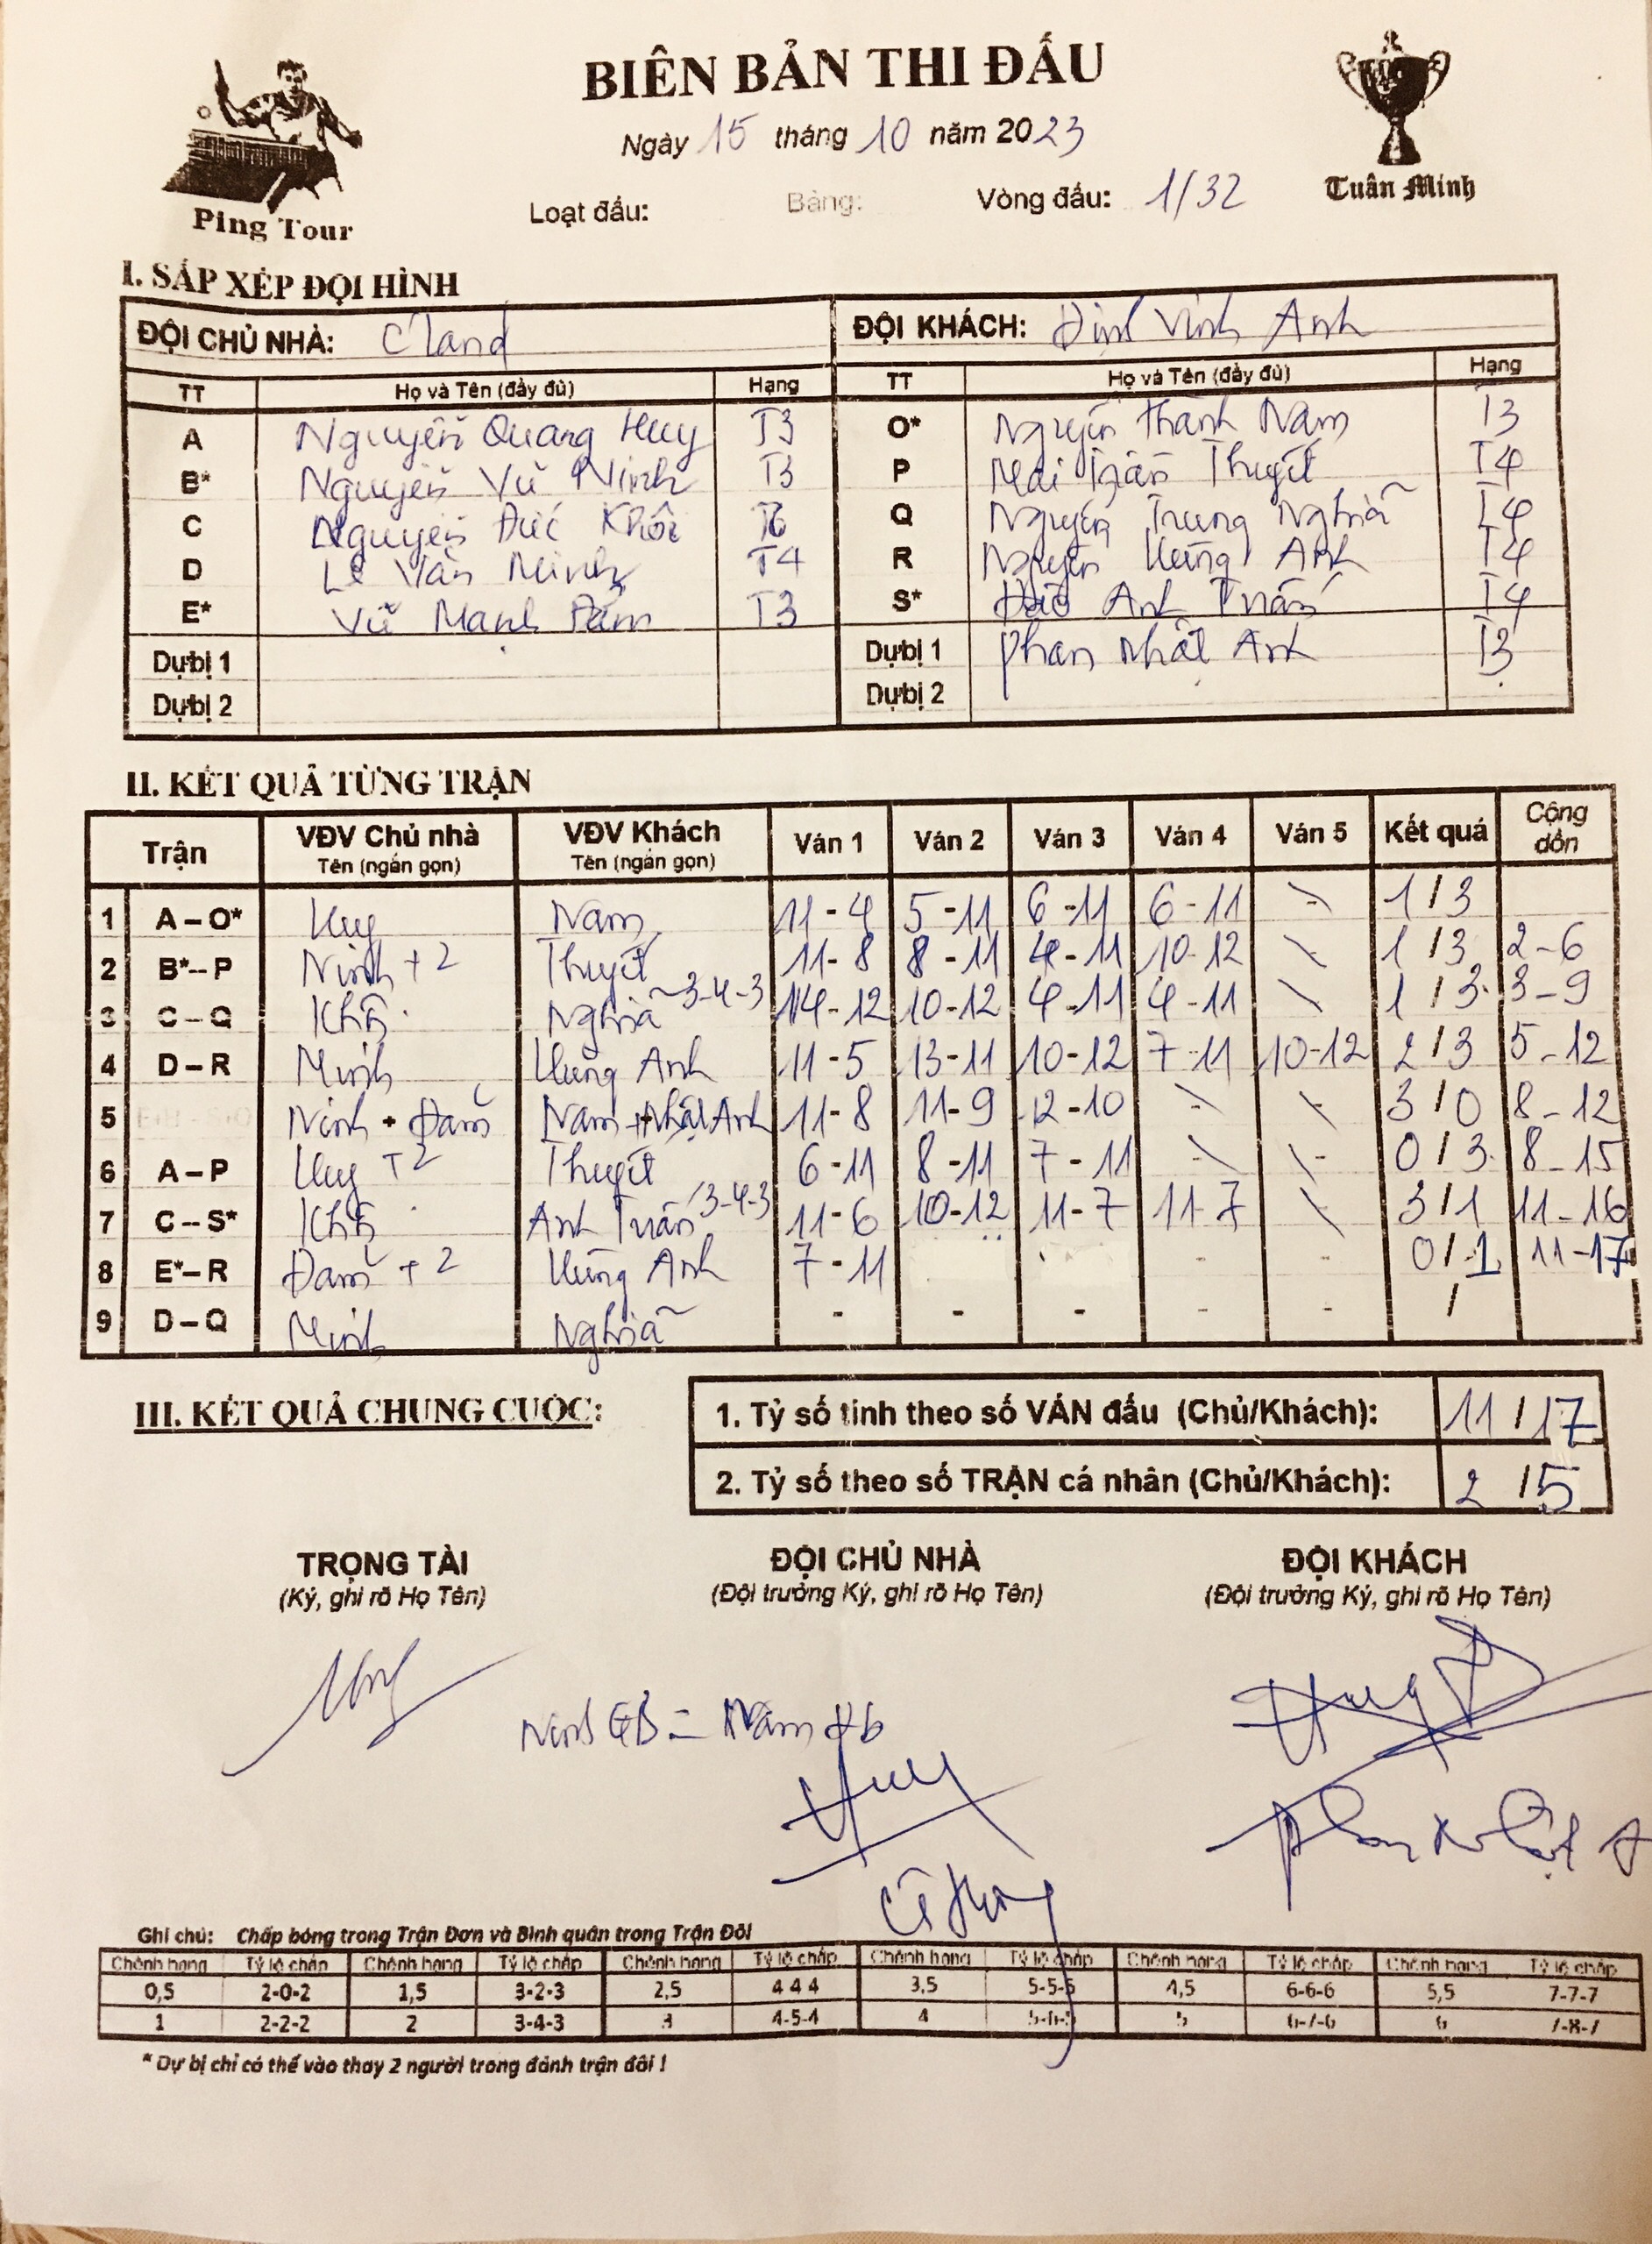 BIÊN BẢN THI ĐẤU
Ngày 15 tháng 10 năm 2023
Ping Tour
Tuân Minh
Loạt đấu: Bảng: Vòng đấu: 1/32
I. SẮP XẾP ĐỘI HÌNH
ĐỘI CHỦ NHÀ: Cland ĐỘI KHÁCH: Định Vinh Anh
TT Họ và Tên (đầy đủ) Hạng TT Họ và Tên (đầy đủ) Hạng
A Nguyễn Quang Huy T3 O* Nguyễn Thành Nam T3
B* Nguyễn Vũ Ninh T3 P Mai Trần Thuyết T4
C Nguyễn Đức Khôi T6 Q Nguyễn Trung Nghĩa T4
D Lê Văn Minh T4 R Nguyễn Hùng Anh T4
E* Vũ Mạnh Đảm T3 S* Đào Anh Tuấn T4
Dự bị 1 Dự bị 1 Phan Nhật Anh T3
Dự bị 2 Dự bị 2
II. KẾT QUẢ TỪNG TRẬN
Trận VĐV Chủ nhà Tên (ngắn gọn) VĐV Khách Tên (ngắn gọn) Ván 1 Ván 2 Ván 3 Ván 4 Ván 5 Kết quả Cộng dồn
1 A – O* Huy Nam 11-4 5-11 6-11 6-11 - 1/3
2 B* -- P Ninh +2 Thuyết 11-8 8-11 4-11 10-12 1/3 2-6
3 C – Q Khôi Nghĩa 3-4-3 14-12 10-12 4-11 4-11 1/3 3-9
4 D – R Minh Hùng Anh 11-5 13-11 10-12 7-11 10-12 2/3 5-12
5 Ninh + Đảm Nam + Nhật Anh 11-8 11-9 12-10 - - 3/0 8-12
6 A – P Huy +2 Thuyết 6-11 8-11 7-11 - - 0/3 8-15
7 C -- S* Khôi Anh Tuấn 3-4-3 11-6 10-12 11-7 11-7 3/1 11-16
8 E* – R Đảm +2 Hùng Anh 7-11 - - 0/1 11-17
9 D – Q Minh Nghĩa - - - - - /
III. KẾT QUẢ CHUNG CUỘC:
1. Tỷ số tính theo số VÁN đấu (Chủ/Khách): 11/17
2. Tỷ số theo số TRẬN cá nhân (Chủ/Khách): 2/5
TRỌNG TÀI ĐỘI CHỦ NHÀ ĐỘI KHÁCH
(Ký, ghi rõ Họ Tên) (Đội trưởng Ký, ghi rõ Họ Tên) (Đội trưởng Ký, ghi rõ Họ Tên)
Huy
Phan Nhật A
Ghi chú: Chấp bóng trong Trận Đơn và Bình quân trong Trận Đôi
Chênh hạng Tỷ lệ chấp Chênh hạng Tỷ lệ chấp Chênh hạng Tỷ lệ chấp Chênh hạng Tỷ lệ chấp Chênh hạng Tỷ lệ chấp Chênh hạng Tỷ lệ chấp
0,5 2-0-2 1,5 3-2-3 2,5 4 4 4 3,5 5-5-5 4,5 6-6-6 5,5 7-7-7
1 2-2-2 2 3-4-3 3 4-5-4 4 5-6-5 5 6-7-6 6 7-8-7
* Dự bị chỉ có thể vào thay 2 người trong đánh trận đôi !